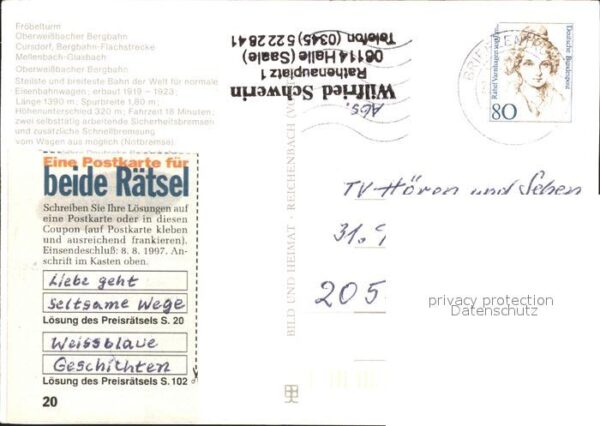 Fröbelturm
Oberweißbacher Bergbahn
Cursdorf, Bergbahn-Flachstrecke
Mellenbach-Glasbach
Oberweißbacher Bergbahn
Steilste und breiteste Bahn der Welt für normale
Eisenbahnwagen; erbaut 1919 - 1923;
Länge 1390 m; Spurbreite 1,80 m;
Höhenunterschied 320 m; Fahrzeit 18 Minuten;
zwei selbsttätig arbeitende Sicherheitsbremsen
und zusätzliche Schnellbremsung
vom Wagen aus möglich (Notbremse)
Eine Postkarte für
beide Rätsel
Schreiben Sie Ihre Lösungen auf
eine Postkarte oder in diesen
Coupon (auf Postkarte kleben
und ausreichend frankieren).
Einsendeschluß: 8. 8. 1997. An-
schrift im Kasten oben.
Liebe geht
Seltsame Wege
Lösung des Preisrätsels S. 20
Weissblaue
Geschichten
Lösung des Preisrätsels S. 102
20
Abs.
Wilfried Schwerin
Rathenauplatz 1
06114 Halle (Saale)
Telefon (0345) 5 22 28 41
BILD UND HEIMAT · REICHENBACH (VO
BRIEFZENTRUM
Rahel Varnhagen von Ense
Deutsche Bundespost
80
TV Hören und Sehen
31.
205
privacy protection
Datenschutz